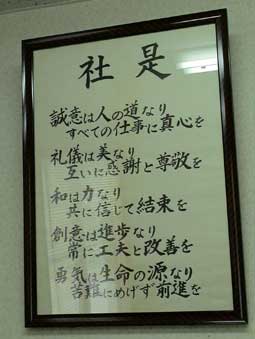 社是
誠意は人の道なり
すべての仕事に真心を
礼儀は美なり
互いに感謝と尊敬を
和は力なり
共に信じて結束を
創意は進歩なり
常に工夫と改善を
勇気は生命の源なり
苦難にめげず前進を